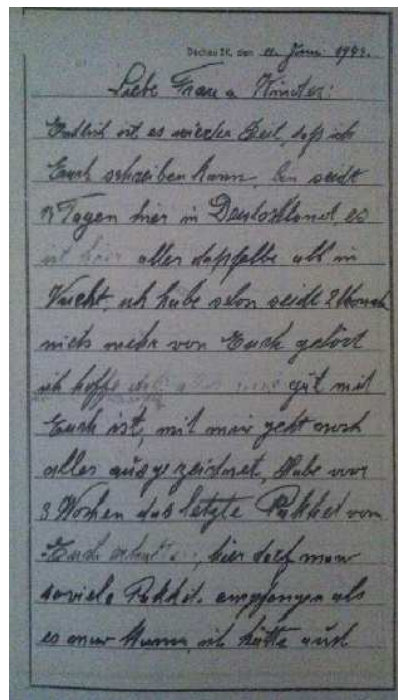 Dachau 3K, den 11. Juni 1944.
Liebe Frau u Kinder:
Endlich ist es wieder Zeit, daß ich
Euch schreiben kann, bin seidt
Tagen hier in Deutschland, es
ist hier alles daßselbe alb in
Vucht, ich habe schon seidt 2 Monath
nichs mehr von Euch gehört
ich hoffe daß alles gut mit
Euch ist, mit mir geht noch
alles ausgezeichnet, Habe vor
3 Wochen das letzte Pakket von
Euch, hier darf man
soviele Pakket. empfangen als
es man kann, ich hätte auch